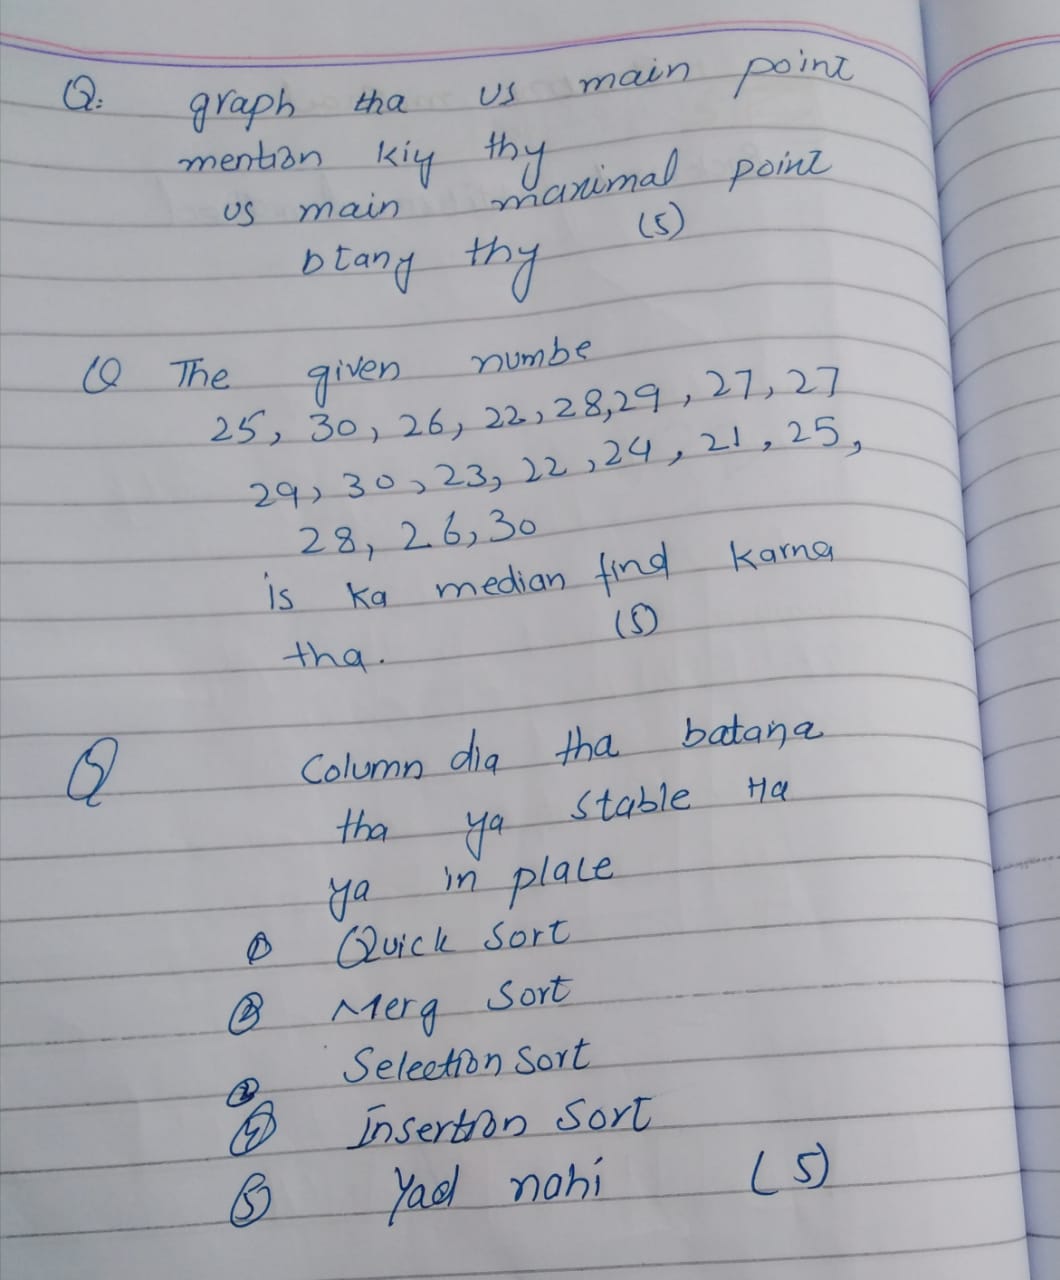 Q. graph tha us main point
mention kiy thy
us main maximal point
btany thy (5)
Q The given numbe
25, 30, 26, 22, 28, 29, 27, 27
29, 30, 23, 22, 24, 21, 25,
28, 26, 30
is ka median find karna
tha. (5)
Q Column dia tha batana
tha ya stable Ha
ya in place
① Quick Sort
② Merg Sort
③ Selection Sort
④ Insertion Sort
⑤ Yad nahi (5)